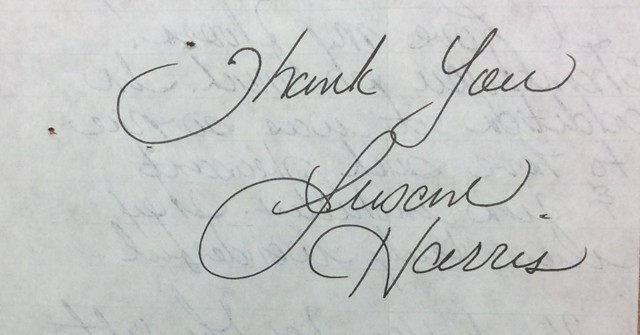 Thank You
Susan
Harris